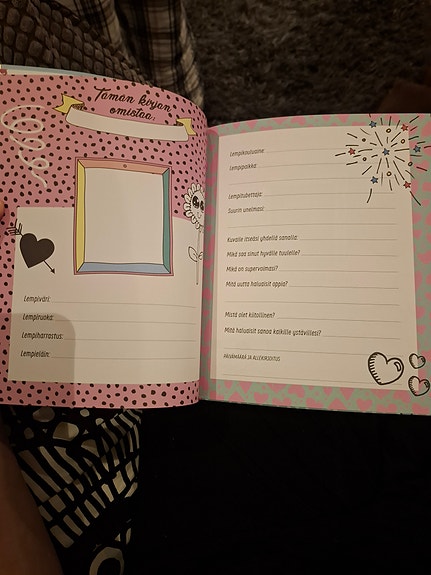 Tämän kirjan
omistaa
Lempiväri:
Lempiruoka:
Lempiharrastus:
Lempieläin:
Lempikouluaine:
Lempipaikka:
Lempitubettaja:
Suurin unelmasi:
Kuvaile itseäsi yhdellä sanalla:
Mikä saa sinut hyvälle tuulelle?
Mikä on supervoimasi?
Mitä uutta haluaisit oppia?
Mistä olet kiitollinen?
Mitä haluaisit sanoa kaikille ystävillesi?
PÄIVÄMÄÄRÄ JA ALLEKIRJOITUS